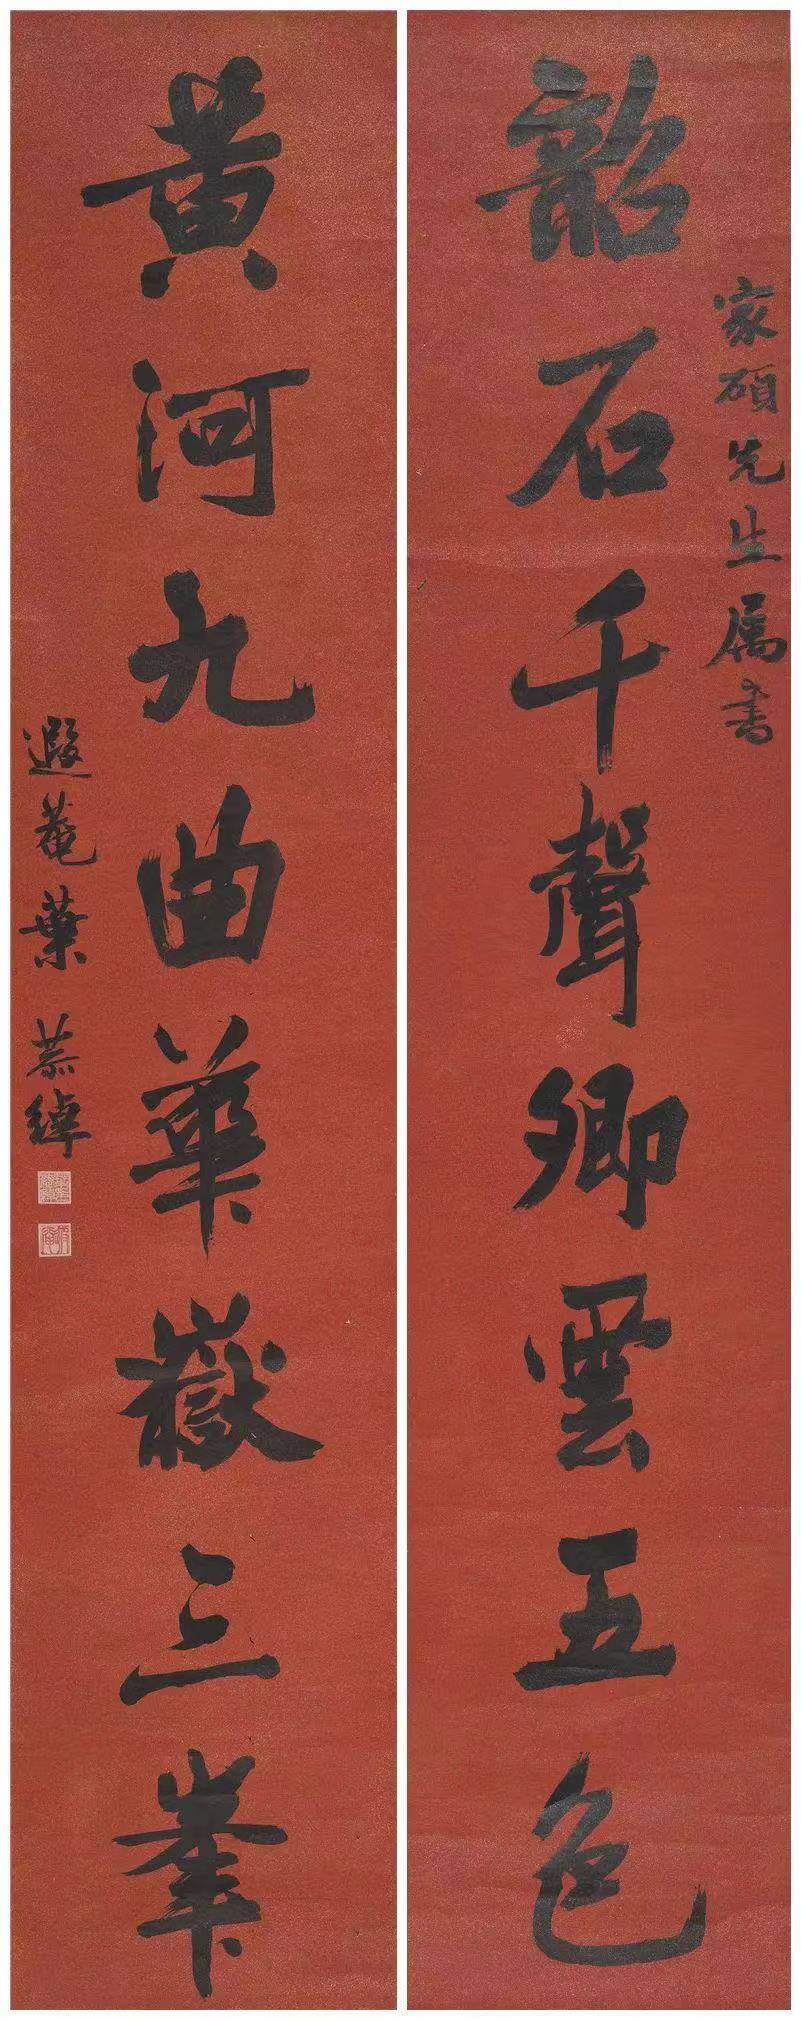 韶石千聲卿雲五色
家碩先生属書
黃河九曲華嶽三峯
遐菴葉恭綽